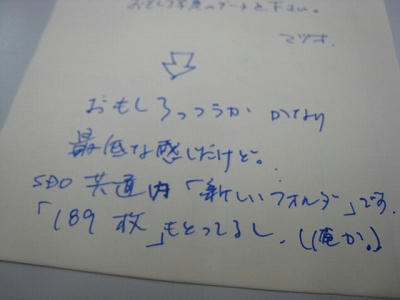 おもしろ写真のデータを下さい。
マツオ
おもしろっつうか かなり
最低な感じだけど。
SDO 共通内「新しいフォルダ」です。
「189 枚」もとってるし、(俺か。)